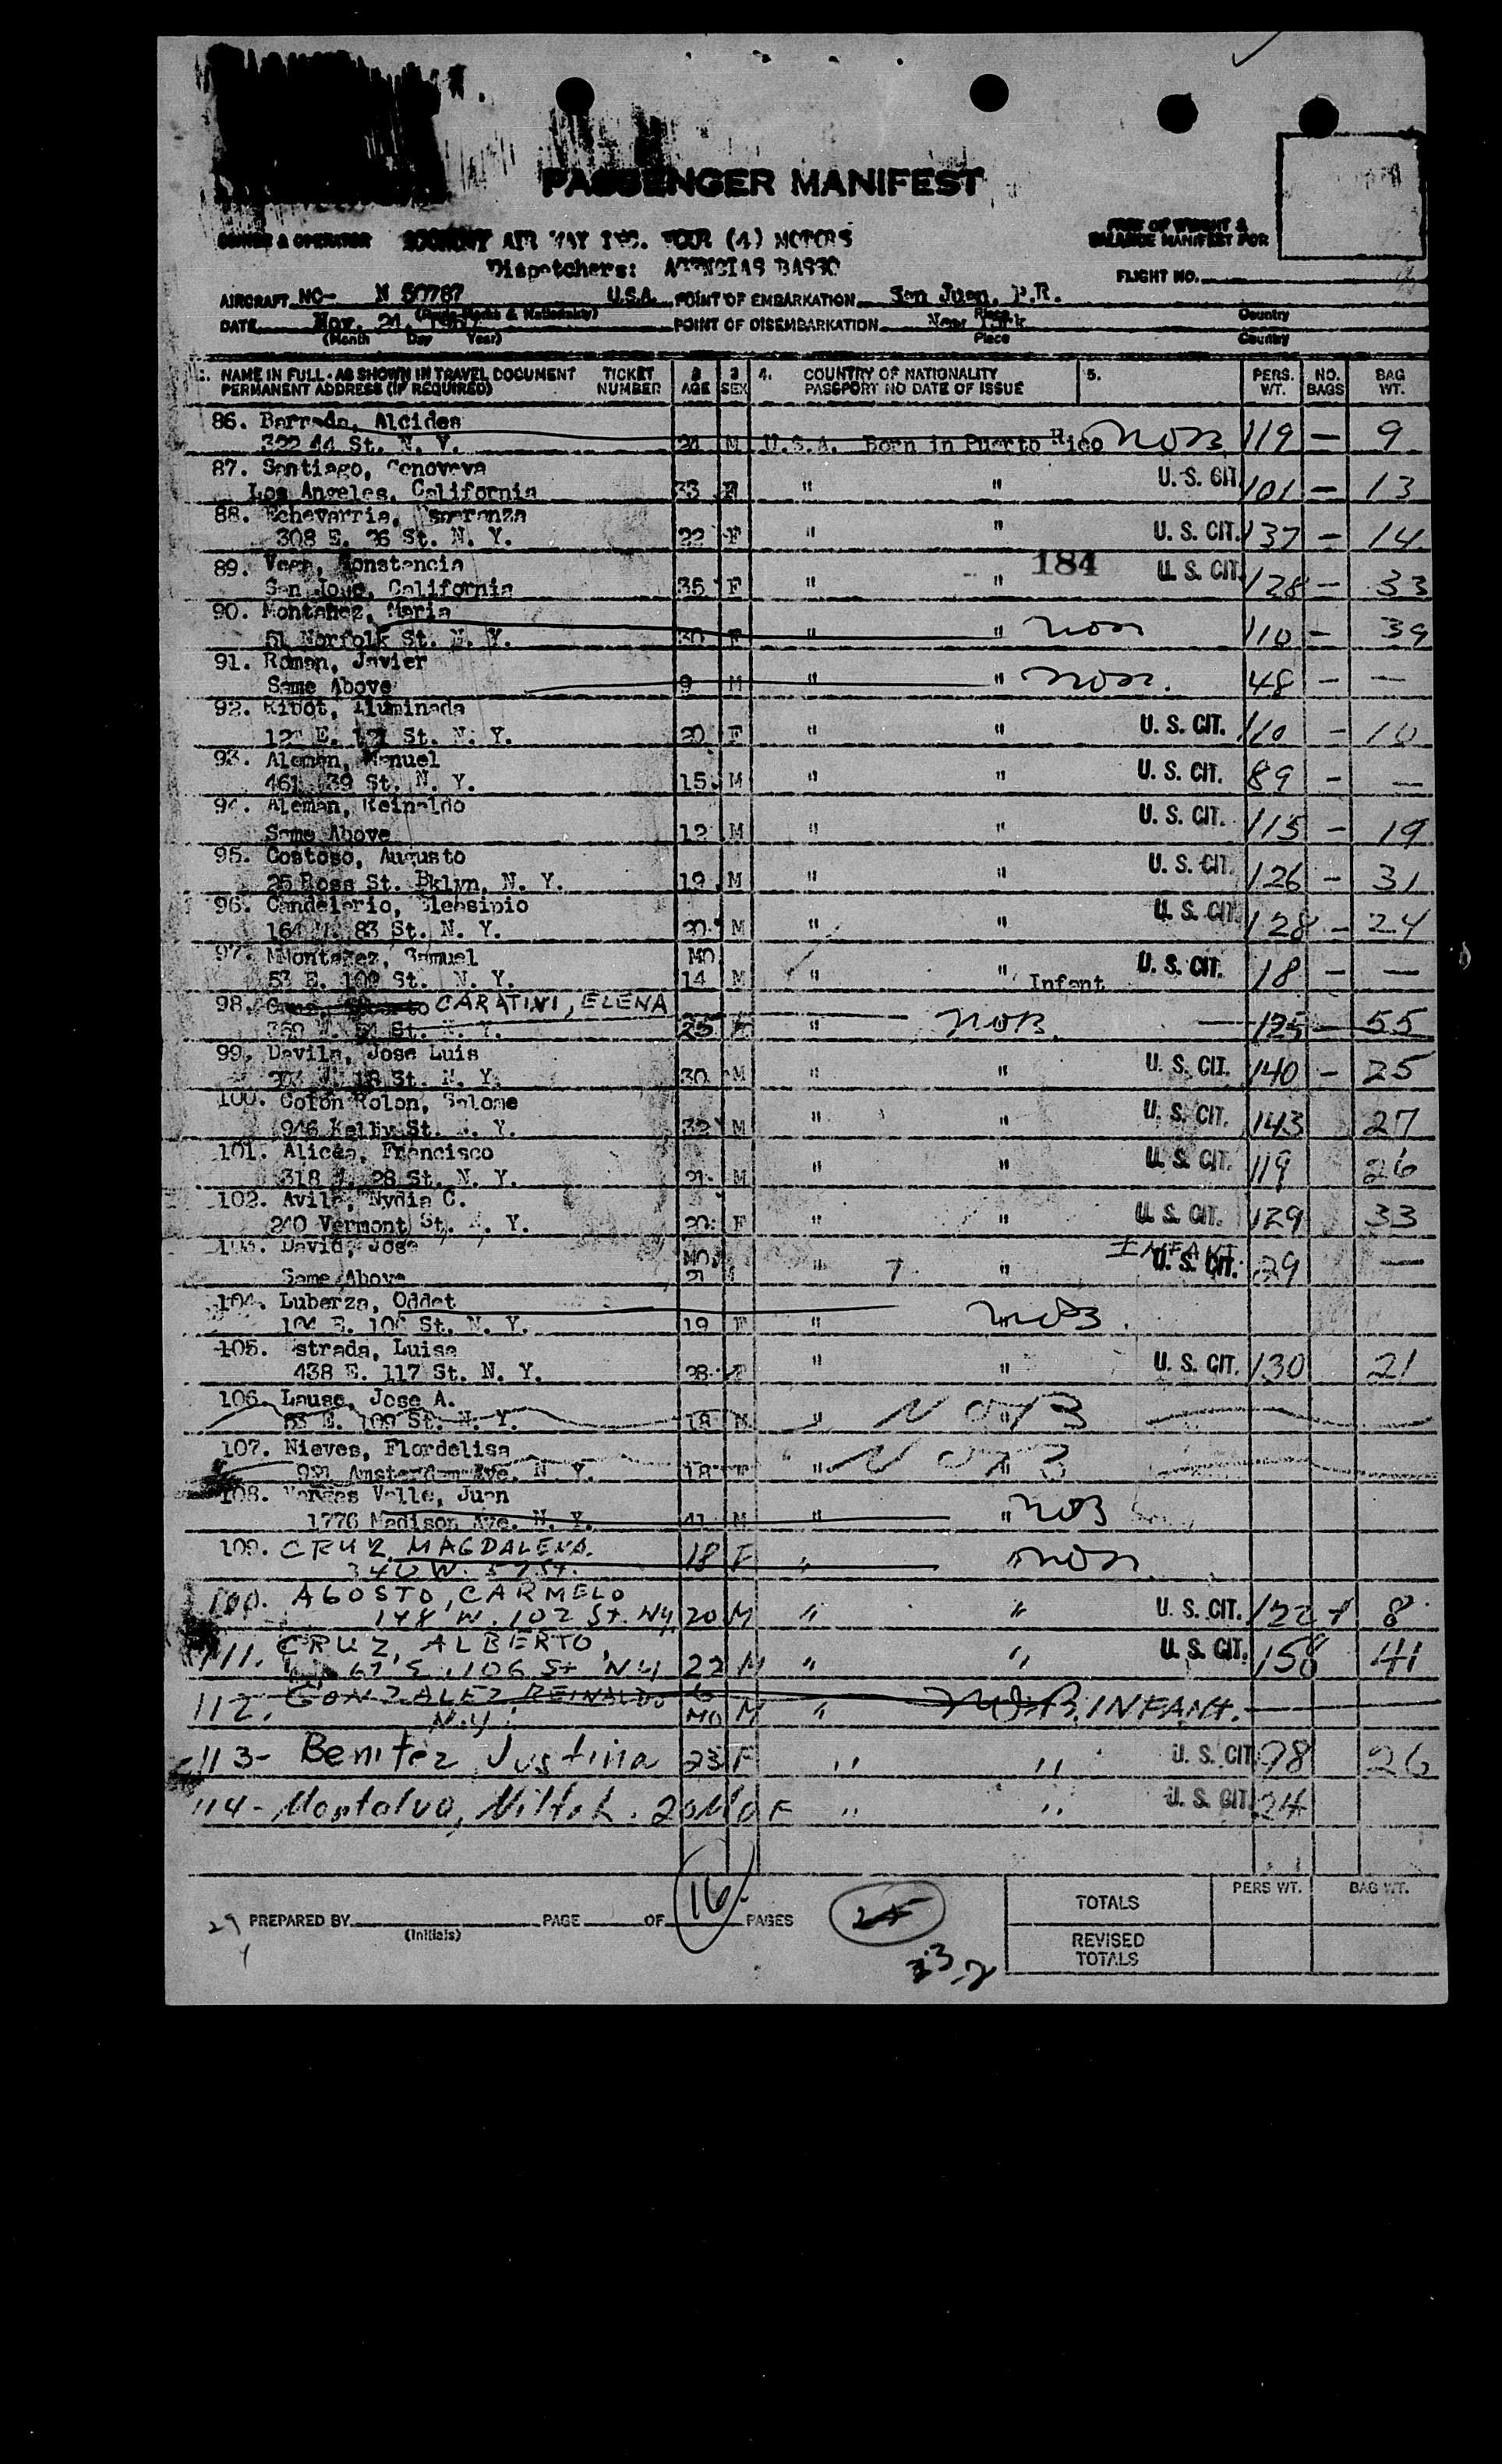 PASSENGER MANIFEST
OWNER & OPERATOR AIR WAY INC. FOUR (4) MOTORS
PART OF WEIGHT &
BALANCE MANIFEST FOR
Dispatchers: AGENCIAS BASSO
FLIGHT NO.
AIRCRAFT NC- N 50787 U.S.A. POINT OF EMBARKATION San Juan, P.R.
(Marks & Nationality) Place Country
DATE Nov. POINT OF DISEMBARKATION New York
(Month Day Year) Place Country
NAME IN FULL - AS SHOWN IN TRAVEL DOCUMENT TICKET 2 3 4. COUNTRY OF NATIONALITY 5. PERS. NO. BAG
PERMANENT ADDRESS (IF REQUIRED) NUMBER AGE SEX PASSPORT NO DATE OF ISSUE WT. BAGS WT.
86. Barreda, Alcides
322 44 St. N. Y. 24 M U.S.A. Born in Puerto Rico NOB 119 — 9
87. Santiago, Genoveva
Los Angeles, California 33 F " " U. S. CIT. 101 — 13
88. Echevarria, Esperanza
308 E. 26 St. N. Y. 22 F " " U. S. CIT. 137 — 14
89. Vega, Constancia 184
San Jose, California 35 F " " U. S. CIT. 128 — 33
90. Montañez, Maria
51 Norfolk St. N. Y. 30 F " " NOB 110 — 39
91. Roman, Javier
Same Above 9 M " " NOB. 48 — —
92. Ribot, Iluminada
E. 121 St. N. Y. 20 F " " U. S. CIT. 110 — 10
93. Aleman, Manuel
461 39 St. N. Y. 15 M " " U. S. CIT. 89 — —
94. Aleman, Reinaldo
Same Above 12 M " " U. S. CIT. 115 — 19
95. Costoso, Augusto
25 Ross St. Bklyn, N. Y. 19 M " " U. S. CIT. 126 — 31
96. Candelario, Eleasipio
164 83 St. N. Y. 20 M " " U. S. CIT. 128 — 24
97. Montañez, Samuel MO
53 E. 109 St. N. Y. 14 M " " Infant U. S. CIT. 18 — —
98. CARATINI, ELENA
St. N. Y. 25 F " NOB. 125 — 55
99. Davila, Jose Luis
St. N. Y. 30 M " " U. S. CIT. 140 — 25
100. Colon Rolon, Salome
946 Kelly St. N. Y. 32 M " " U. S. CIT. 143 27
101. Alicea, Francisco
318 28 St. N. Y. 21 M " " U. S. CIT. 119 26
102. Avila, Nydia C.
240 Vermont St. N. Y. 20 F " " U. S. CIT. 129 33
103. David, Jose MO. INFANT
Same Above 21 " " U. S. CIT. 29 —
104. Luberza, Oddet
104 E. 106 St. N. Y. 19 F " " NOB.
105. Estrada, Luisa
438 E. 117 St. N. Y. 28 F " " U. S. CIT. 130 21
106. Lause, Jose A.
53 E. 109 St. N. Y. 18 M " " NOB
107. Nieves, Flordelisa
Amsterdam Ave. N. Y. 18 F " " NOB
108. Vargas Valle, Juan
1776 Madison Ave. N. Y. 41 M " " NOB
109. CRUZ, MAGDALENA. 18 F " " NOB
340 W. 57 St.
AGOSTO, CARMELO
148 W. 102 St. NY 20 M " " U. S. CIT. 122 8
111. CRUZ, ALBERTO,
67 E. 106 St NY 22 M " " U. S. CIT. 158 41
112. GONZALEZ REINALDO 6
N.Y. MO M " NOB. INFANT.
113- Benitez Justina 23 F " " U. S. CIT. 98 26
114- Montalvo, 20 Mo F " " U. S. CIT. 24
29 PREPARED BY PAGE OF 16 PAGES
(Initials)
TOTALS PERS WT. BAG WT.
REVISED
TOTALS
33